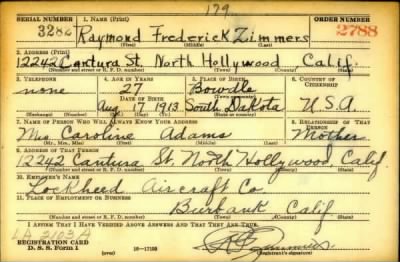 179
SERIAL NUMBER 1. NAME (Print) ORDER NUMBER
3282 Raymond Frederick Zimmers 2788
(First) (Middle) (Last)
2. ADDRESS (Print)
12242 Cantura St. North Hollywood Calif.
(Number and street or R. F. D. number) (Town) (County) (State)
3. TELEPHONE 4. AGE IN YEARS 5. PLACE OF BIRTH 6. COUNTRY OF CITIZENSHIP
none 27 Bowdle
DATE OF BIRTH (Town or county)
Aug 17 1913 South Dakota U.S.A.
(Exchange) (Number) (Mo.) (Day) (Yr.) (State or country)
7. NAME OF PERSON WHO WILL ALWAYS KNOW YOUR ADDRESS 8. RELATIONSHIP OF THAT PERSON
Mrs Caroline Adams Mother
(Mr., Mrs., Miss) (First) (Middle) (Last)
9. ADDRESS OF THAT PERSON
12242 Cantura St. North Hollywood, Calif
(Number and street or R. F. D. number) (Town) (County) (State)
10. EMPLOYER'S NAME
Lockheed Aircraft Co
11. PLACE OF EMPLOYMENT OR BUSINESS
Burbank Calif
(Number and street or R. F. D. number) (Town) (County) (State)
I AFFIRM THAT I HAVE VERIFIED ABOVE ANSWERS AND THAT THEY ARE TRUE.
REGISTRATION CARD
D. S. S. Form 1 (over) 16-17105
(Registrant's signature)